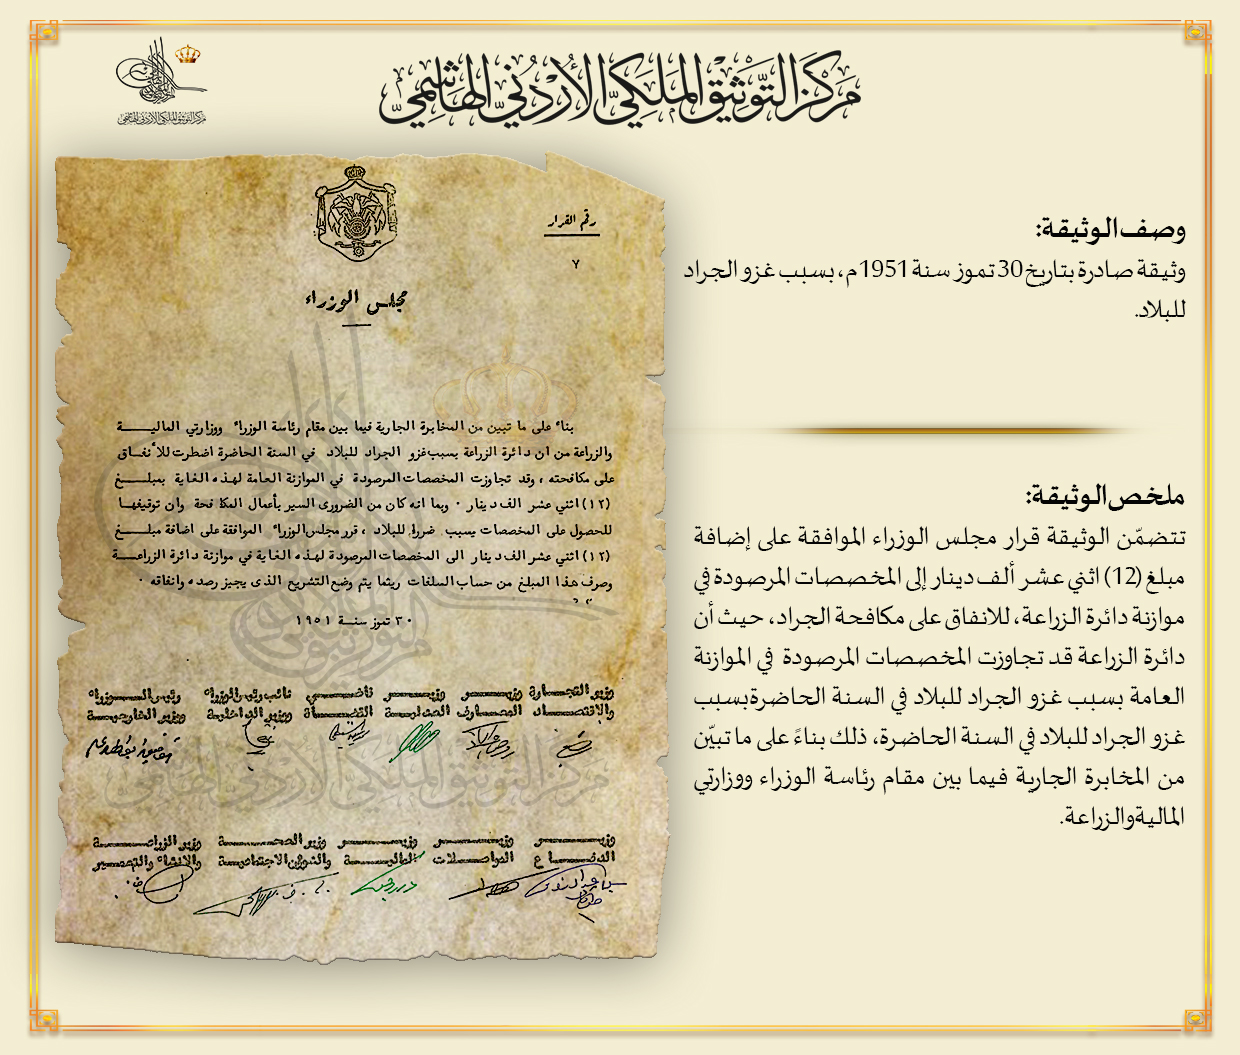 مركز التوثيق الملكي الأردني الهاشمي
مركز التوثيق الملكي الأردني الهاشمي
وصف الوثيقة:
وثيقة صادرة بتاريخ 30 تموز سنة 1951م، بسبب غزو الجراد
للبلاد.
ملخص الوثيقة:
تتضمّن الوثيقة قرار مجلس الوزراء الموافقة على إضافة
مبلغ (12) اثني عشر ألف دينار إلى المخصصات المرصودة في
موازنة دائرة الزراعة، للانفاق على مكافحة الجراد، حيث أن
دائرة الزراعة قد تجاوزت المخصصات المرصودة في الموازنة
العامة بسبب غزو الجراد للبلاد في السنة الحاضرة بسبب
غزو الجراد للبلاد في السنة الحاضرة، ذلك بناءً على ما تبيّن
من المخابرة الجارية فيما بين مقام رئاسة الوزراء ووزارتي
المالية والزراعة.
رقم القرار
٧
مجلس الوزراء
بناء على ما تبين من المخابرة الجارية فيما بين مقام رئاسة الوزراء ووزارتي الماليـــة
والزراعة من ان دائرة الزراعة بسبب غزو الجراد للبلاد في السنة الحاضرة اضطرت للأنفـاق
على مكافحته ، وقد تجاوزت المخصصات المرصودة في الموازنة العامة لهذه الغاية بمبلـــغ
(١٢) اثني عشر الف دينار ٠ وبما انه كان من الضروري السير بأعمال المكافحة وان توقيفهـا
للحصول على المخصصات يسبب ضررا للبلاد ، قرر مجلس الوزراء الموافقة على اضافة مبلــغ
(١٢) اثني عشر الف دينار الى المخصصات المرصودة لهذه الغاية في موازنة دائرة الزراعـــة
وصرف هذا المبلغ من حساب السلفات ريثما يتم وضع التشريع الذي يجيز رصده وانفاقه ٠
٣٠ تموز سنـة ١٩٥١
وزير التجـارة وزيـــر وزيـــر قاضـــي نائب رئيس الوزراء رئيس الـــوزراء
والاقتصـــاد المعـــارف العدليـــة القضـــاة ووزير الداخليـة ووزير الخارجيـــة
وزيـــر وزيـــر وزيـــر وزير الصحـــة وزير الزراعـــة
الدفـــاع المواصـــلات الماليـــة والشؤون الاجتماعيـــة والانشاء والتعمير